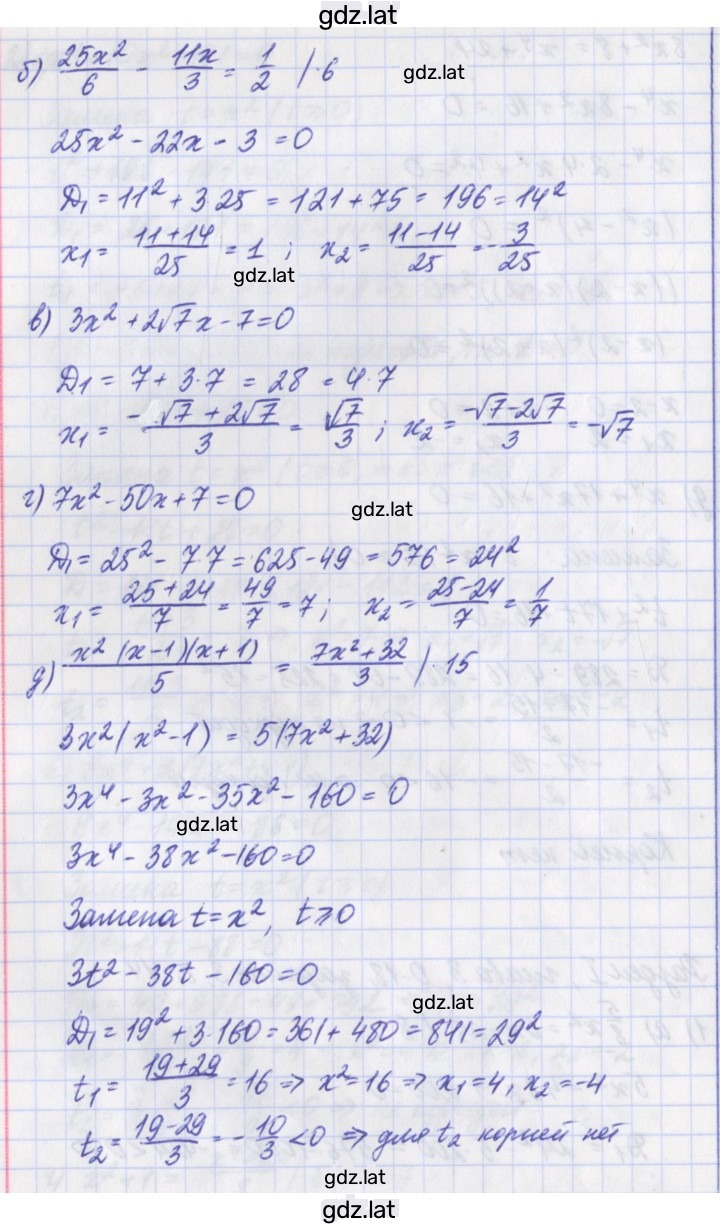 gdz.lat
б) 25x²/6 - 11x/3 = 1/2 |·6
gdz.lat
25x² - 22x - 3 = 0
D₁ = 11² + 3·25 = 121 + 75 = 196 = 14²
x₁ = (11+14)/25 = 1 ; x₂ = (11-14)/25 = -3/25
gdz.lat
в) 3x² + 2√7x - 7 = 0
D₁ = 7 + 3·7 = 28 = 4·7
x₁ = (-√7 + 2√7)/3 = √7/3 ; x₂ = (-√7-2√7)/3 = -√7
г) 7x² - 50x + 7 = 0
gdz.lat
D₁ = 25² - 7·7 = 625 - 49 = 576 = 24²
x₁ = (25+24)/7 = 49/7 = 7 ; x₂ = (25-24)/7 = 1/7
д) x²(x-1)(x+1)/5 = (7x²+32)/3 |·15
3x²(x²-1) = 5(7x²+32)
3x⁴ - 3x² - 35x² - 160 = 0
gdz.lat
3x⁴ - 38x² - 160 = 0
Замена t = x², t ⩾ 0
3t² - 38t - 160 = 0
gdz.lat
D₁ = 19² + 3·160 = 361 + 480 = 841 = 29²
t₁ = (19+29)/3 = 16 => x² = 16 => x₁ = 4, x₂ = -4
t₂ = (19-29)/3 = -10/3 < 0 => для t₂ корней нет
gdz.lat
gdz.lat